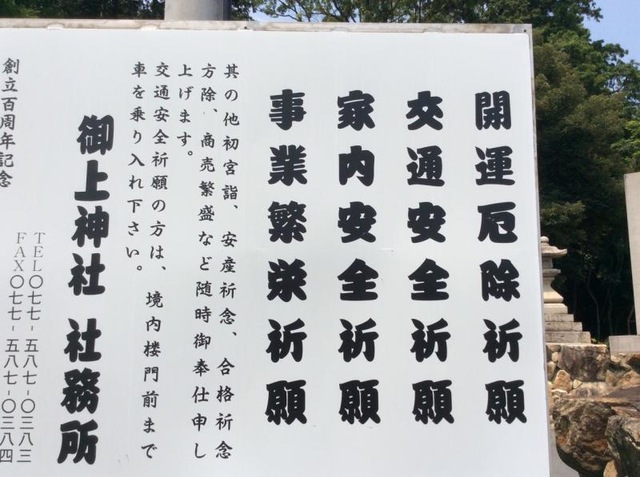 開運厄除祈願
交通安全祈願
家内安全祈願
事業繁栄祈願
其の他初宮詣、安産祈念、合格祈念
方除、商売繁盛など随時御奉仕申し
上げます。
交通安全祈願の方は、境内楼門前まで
車を乗り入れ下さい。
御上神社 社務所
TEL〇七七-五八七-〇三八三
FAX〇七七-五八七-〇三八四
創立百周年記念